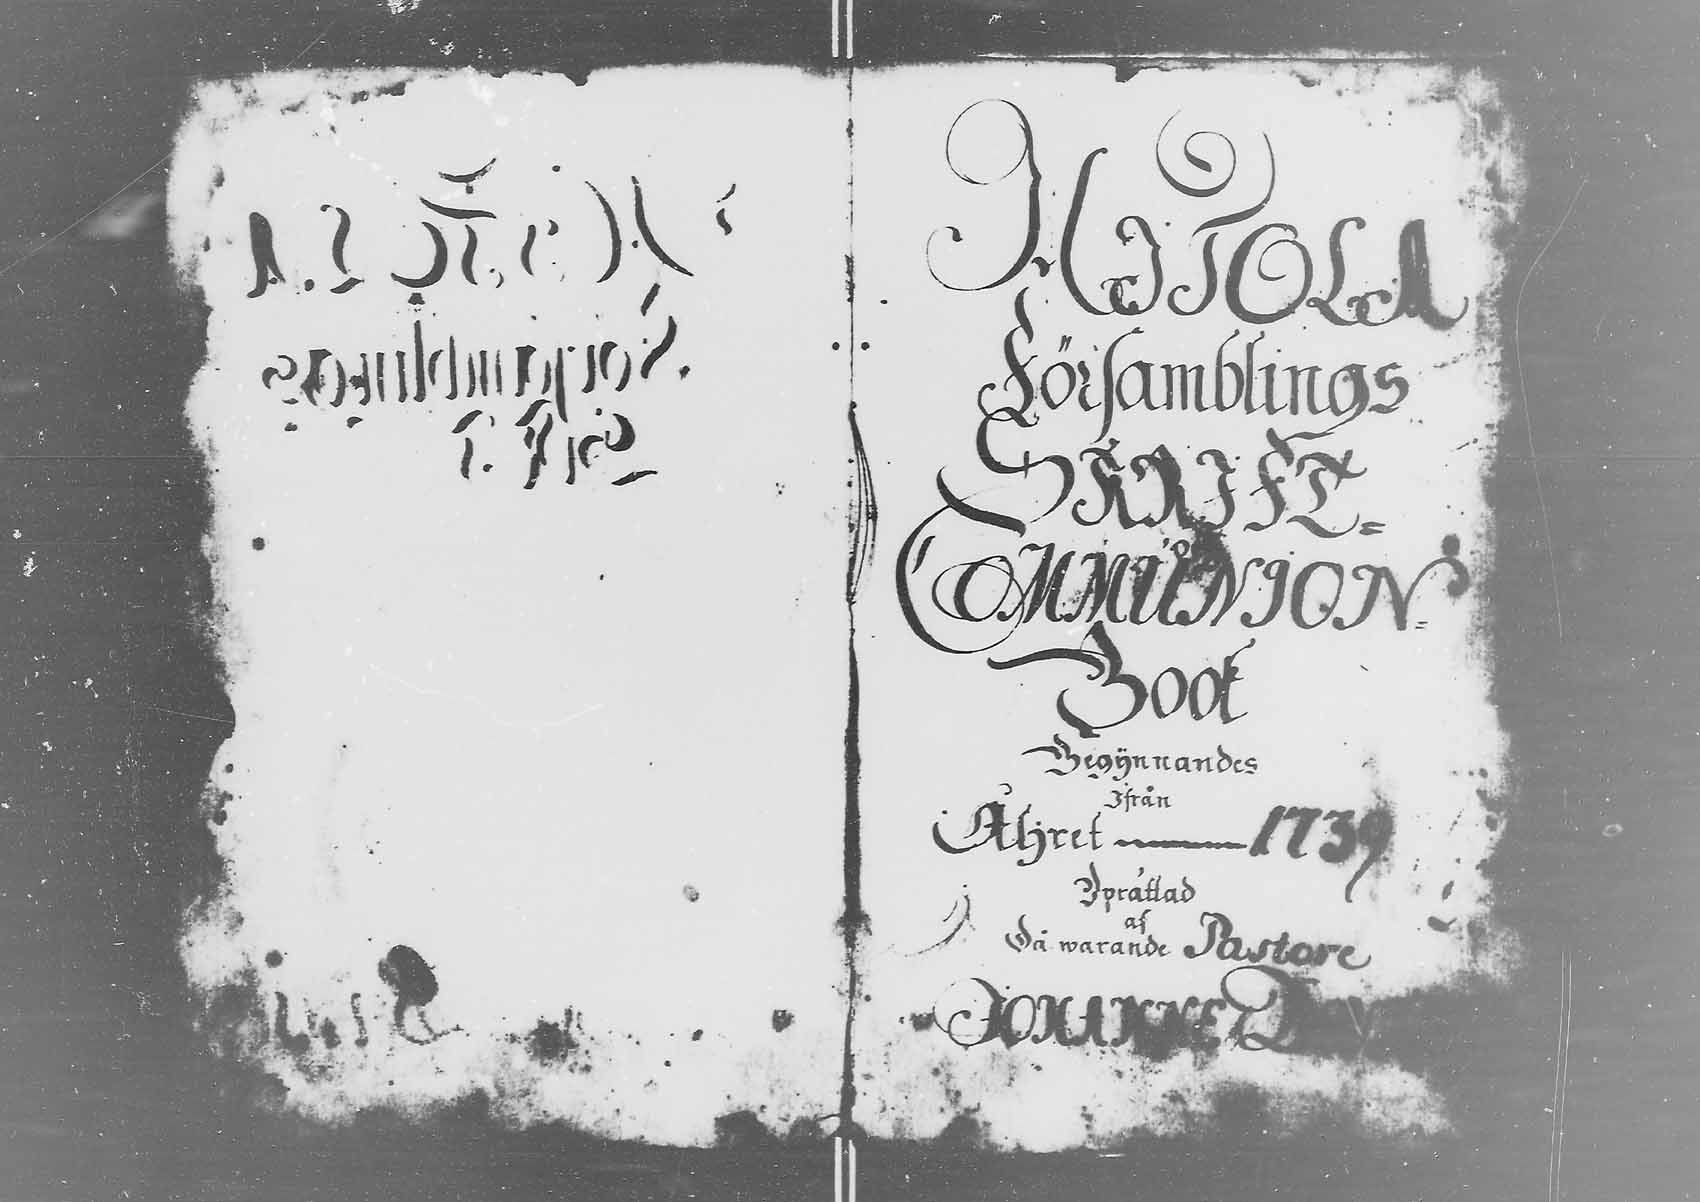 HITOLA
Församblings
SKRIFT=
COMMUNION=
Book
Begÿnnandes
Ifrån
Åhret 1739
Iprättad
af
Då warande Pastore
JOHANNE